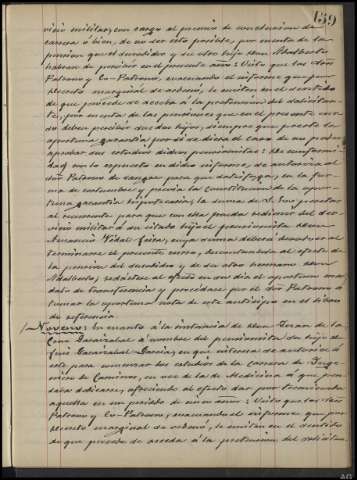 159
vicio militar, con cargo al premio de conclusión de
carrera ó bien, de no ser esto posible, por cuenta de la
pension que el susodicho y su otro hijo Don Adalberto
habrán de percibir en el presente año: Visto que los Sres
Patrono y Co-Patrono, evacuando el informe que por
decreto marginal se ordenó, lo emiten en el sentido
de que procede se acceda á la pretension del solicitan-
te, por cuenta de las pensiones que en el presente cur-
so deben percibir sus dos hijos, siempre que preste la
oportuna garantia para el caso de no probar
aprobar sus estudios dichos pensionistas: De conformi-
dad con lo expuesto en dicho informe, se autoriza al
Sor Patrono de sangre para que satisfaga, en la for-
ma de costumbre y previa la constitucion de la opor-
tuna garantia hipotecaria, la suma de
al recurrente para que con ella pueda redimir del ser-
vicio militar á su citado hijo el pensionista Don
Venancio Vidal cuya suma deberá devolver al
terminarse el presente curso, descontandola al efecto de
la pension del susodicho y de su otro hermano Don
Adalberto; expidase al efecto en su dia el oportuno man-
dato de transferencia y procédase por el Sor Patrono á
tomar la oportuna nota de este anticipo en el libro
de referencia.
Noveno: En cuanto á la instancia de Don Juan de la
Cruz á nombre del pensionista su hijo
Luis Garcia, en que interesa se autorice á
este para comenzar los estudios de la Carrera de Inge-
niero de Caminos, en vez de la de Medicina á que pen-
saba dedicarse, ofreciendo al efecto dar por terminada
aquella en un periodo de años: Visto que los Sres
Patrono y Co-Patrono, evacuando el informe que por
decreto marginal se ordenó, lo emiten en el sentido
de que procede se acceda á la pretension del solicitan-